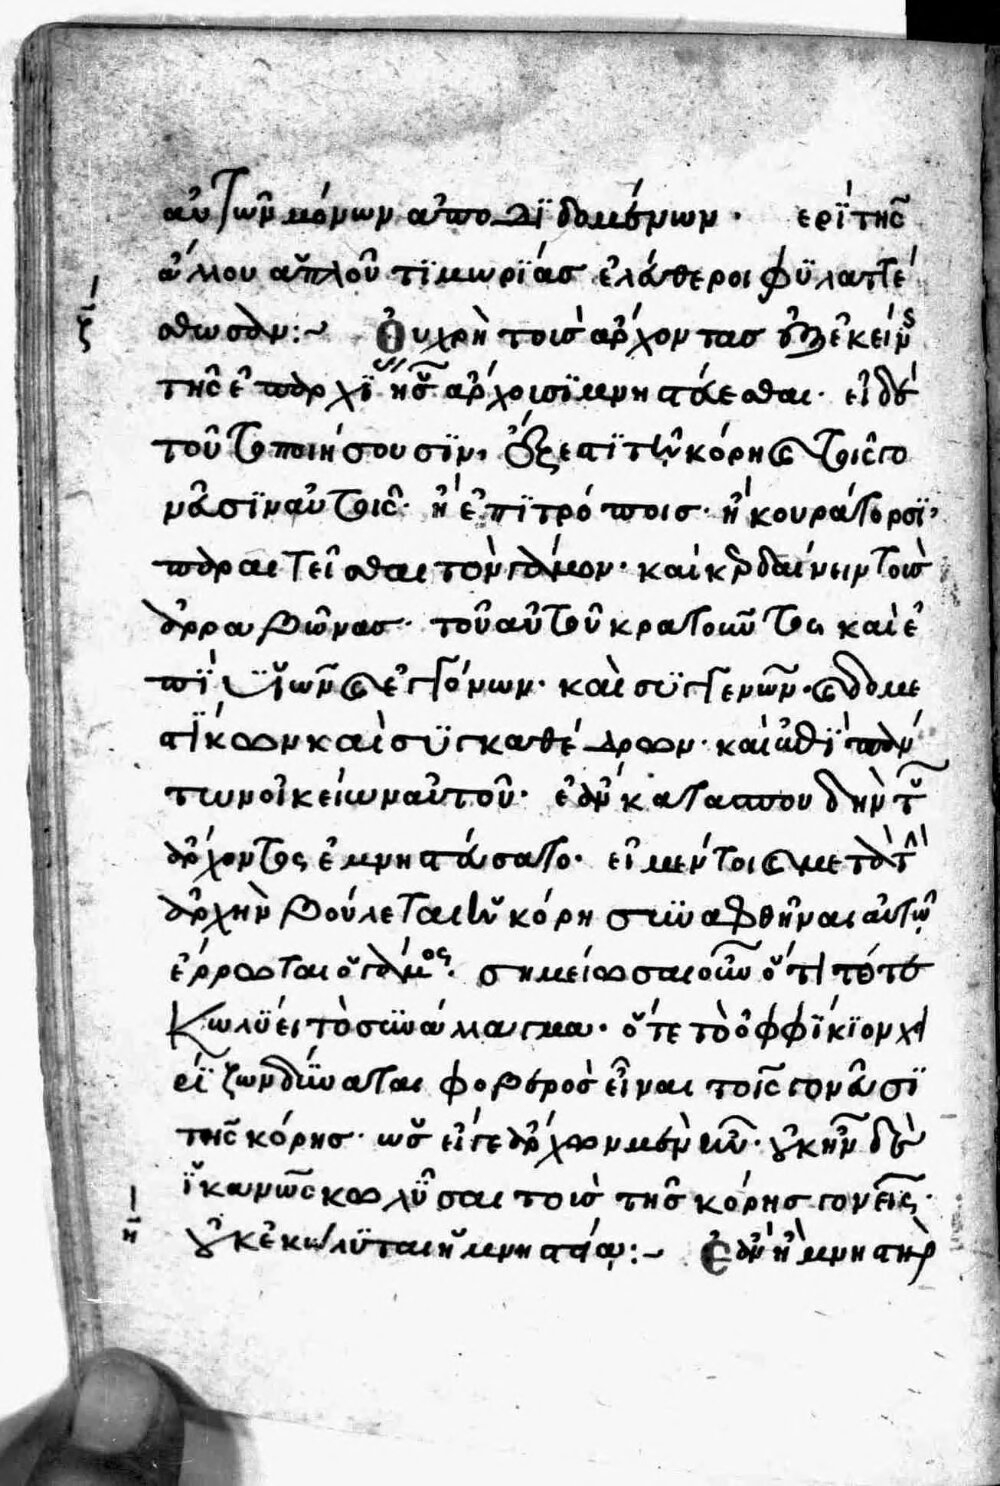 αὐτῶν μόνων ἀποδϊδομένων. ερὶ τῆς
ἄλλου ἁπλοῦ τϊμωρϊάσ ἐλεύθεροι φϋλαττέ
σθωσαν:~ Οὐ χρὴ τοὺσ ἄρχοντασ ἐξ ἐκείνης
ζ
τῆς ἐπαρχϊ ἧς ἄρχουσϊ μνηστεύεσθαι. εἰ δὲ
τοῦτο ποιήσουσϊν, ἔξεστϊ τῆ κόρη καὶ τοῖς γο
νεῦσϊν αὐτοῖς. ἢ ἐπϊτρόποισ. ἢ κουράτορσϊ,
παραιτεῖσθαι τὸν γάμον. καὶ κερδαίνειν τοὺσ
ἀρραβῶνασ. τοῦ αὐτοῦ κρατοῦντος καὶ ἐ
πὶ ϋἱῶν καὶ ἐγγόνων. καὶ συγγενῶν. καὶ δομε
στϊκων καὶ συγκαθέδρων. καὶ
των οἰκείων αὐτοῦ. ἐὰν κατὰ σπουδὴν τοῦ
ἄρχοντος ἐμνηστεύσατο. εἰ μέντοι καὶ μετὰ τὴν
ἀρχὴν βούλεται ἡ κόρη συναφθῆναι αὐτῶ
ἔρρωται ὁ γάμος. σημείωσαι οὖν ὅτι τότε
κωλύει τὸ συνάλλαγμα. ὅτε τὸ ὀφφϊκϊον
ϊζων δύναται φοβερὸσ εἶναι τοῖς γονεῦσϊ
τῆς κόρησ. ὡς εἴγε ἄρχων μὲν ἦν. οὐκ ἦν δὲ
ϊκανῶς κωλῦσαι τοὺσ τῆς κόρησ γονεῖς.
οὐ κεκώλυται ἡ μνηστεία:~ Ἐὰν ἡ μνηστὴρ
η